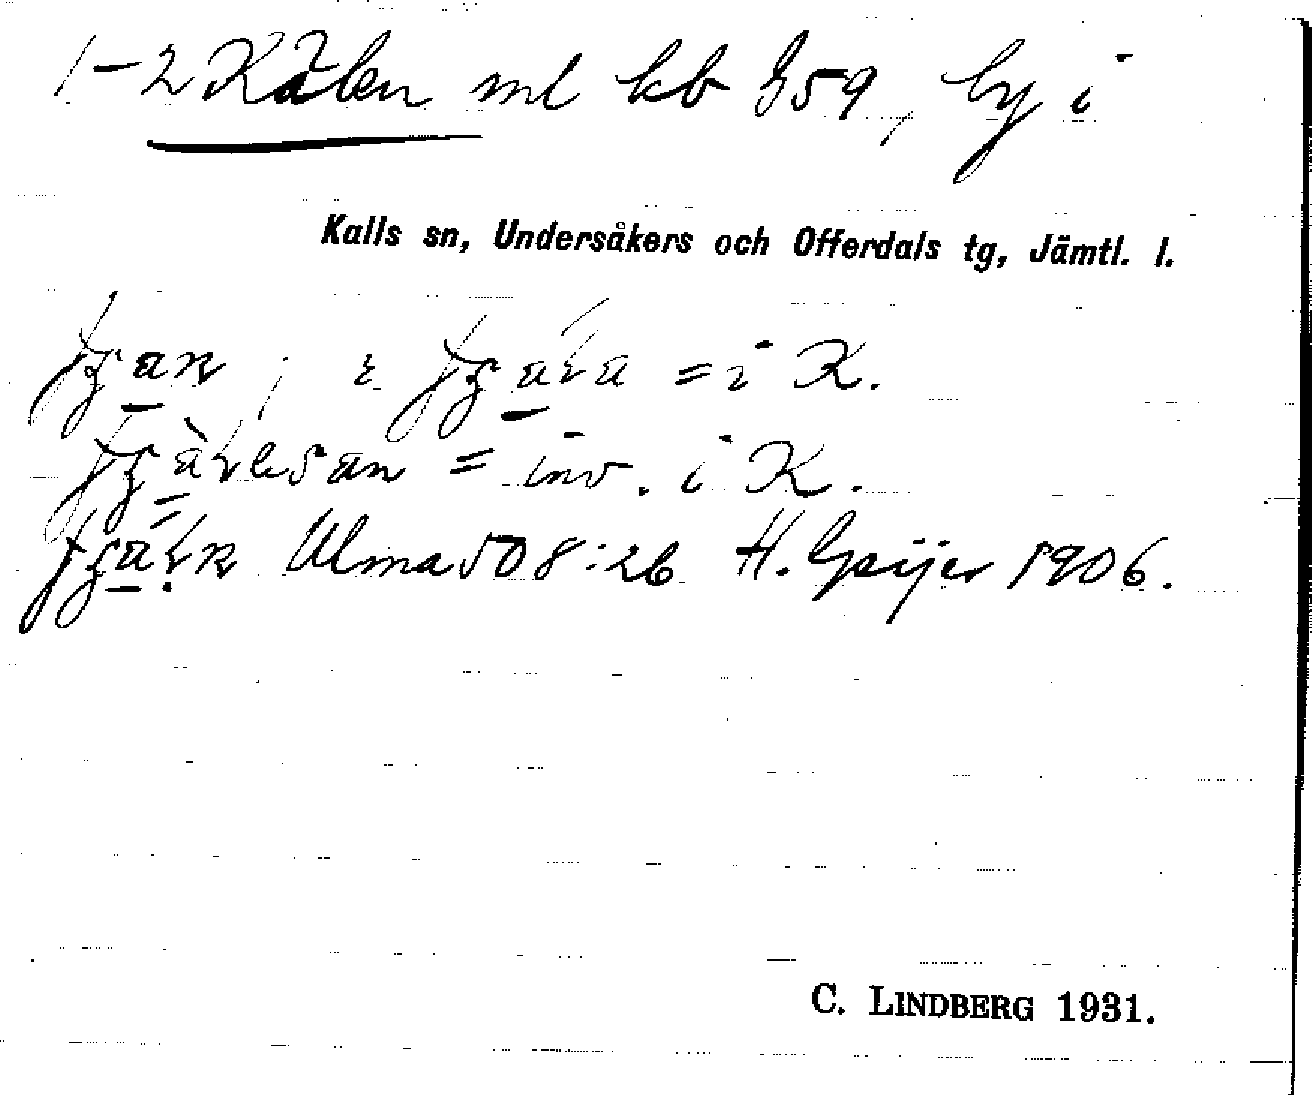 1-2 Kålen ml kb §59, by i
Kalls sn, Undersåkers och Offerdals tg, Jämtl. l.
= i K.
= inv. i K.
Ulma 508:26 H. Geijer 1906.
C. LINDBERG 1931.